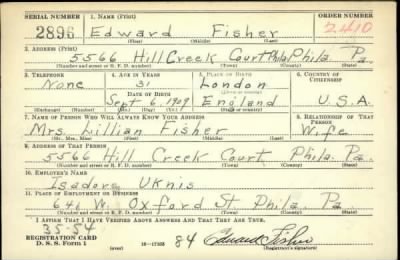 SERIAL NUMBER 1. NAME (Print) ORDER NUMBER
2896 Edward Fisher 2410
(First) (Middle) (Last)
2. ADDRESS (Print)
5566 Hill Creek Court Phila Phila. Pa.
(Number and street or R. F. D. number) (Town) (County) (State)
3. TELEPHONE 4. AGE IN YEARS 5. PLACE OF BIRTH 6. COUNTRY OF CITIZENSHIP
None 31 London
DATE OF BIRTH (Town or county)
Sept 6, 1909 England U.S.A.
(Exchange) (Number) (Mo.) (Day) (Yr.) (State or country)
7. NAME OF PERSON WHO WILL ALWAYS KNOW YOUR ADDRESS 8. RELATIONSHIP OF THAT PERSON
Mrs. Lillian Fisher Wife
(Mr., Mrs., Miss) (First) (Middle) (Last)
9. ADDRESS OF THAT PERSON
5566 Hill Creek Court, Phila. Pa.
(Number and street or R. F. D. number) (Town) (County) (State)
10. EMPLOYER'S NAME
Isadore Uknis
11. PLACE OF EMPLOYMENT OR BUSINESS
641 W. Oxford St Phila. Pa.
(Number and street or R. F. D. number) (Town) (County) (State)
I AFFIRM THAT I HAVE VERIFIED ABOVE ANSWERS AND THAT THEY ARE TRUE.
35-54
REGISTRATION CARD
D. S. S. Form 1 (over) 84 Edward Fisher
(Registrant's signature)